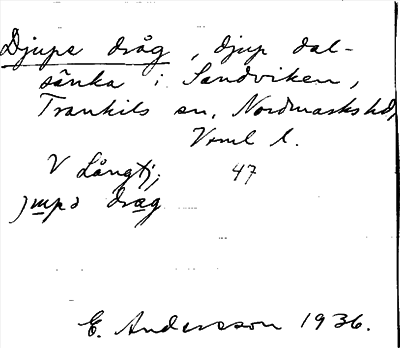 Djupe dråg, djup dal-
sänka i Sandviken,
Trankils sn, Nordmarks hd,
Vrml l.
V Långtj; 47
jupə dræg
E. Andersson 1936.